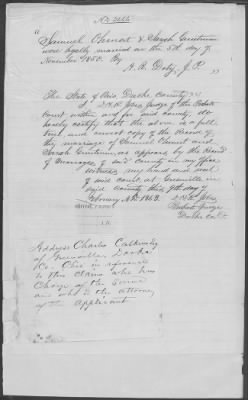 Samuel Chenot & Sarah
were legally married on the 5th day of
November 1858. By
H. R. Doty, J. P.
The State of Ohio, Darke County, ss
I D. H. R. Judge of the Probate
Court within and for said county, do
hereby certify that the above is a full
true, and correct copy of the Record of
the marriage of Samuel and
Sarah as appears by the Record
of Marriages of said county in my office
Witness, my hand and seal
of said court at Greenville in
said county this 9th day of
February A.D. 1863.
Probate Judge
Darke Co. O.
Address Charles
of Greenville, Darke
Co. Ohio in reference
to this claim who has
Charge of the same
and who is the attorney
of the applicant